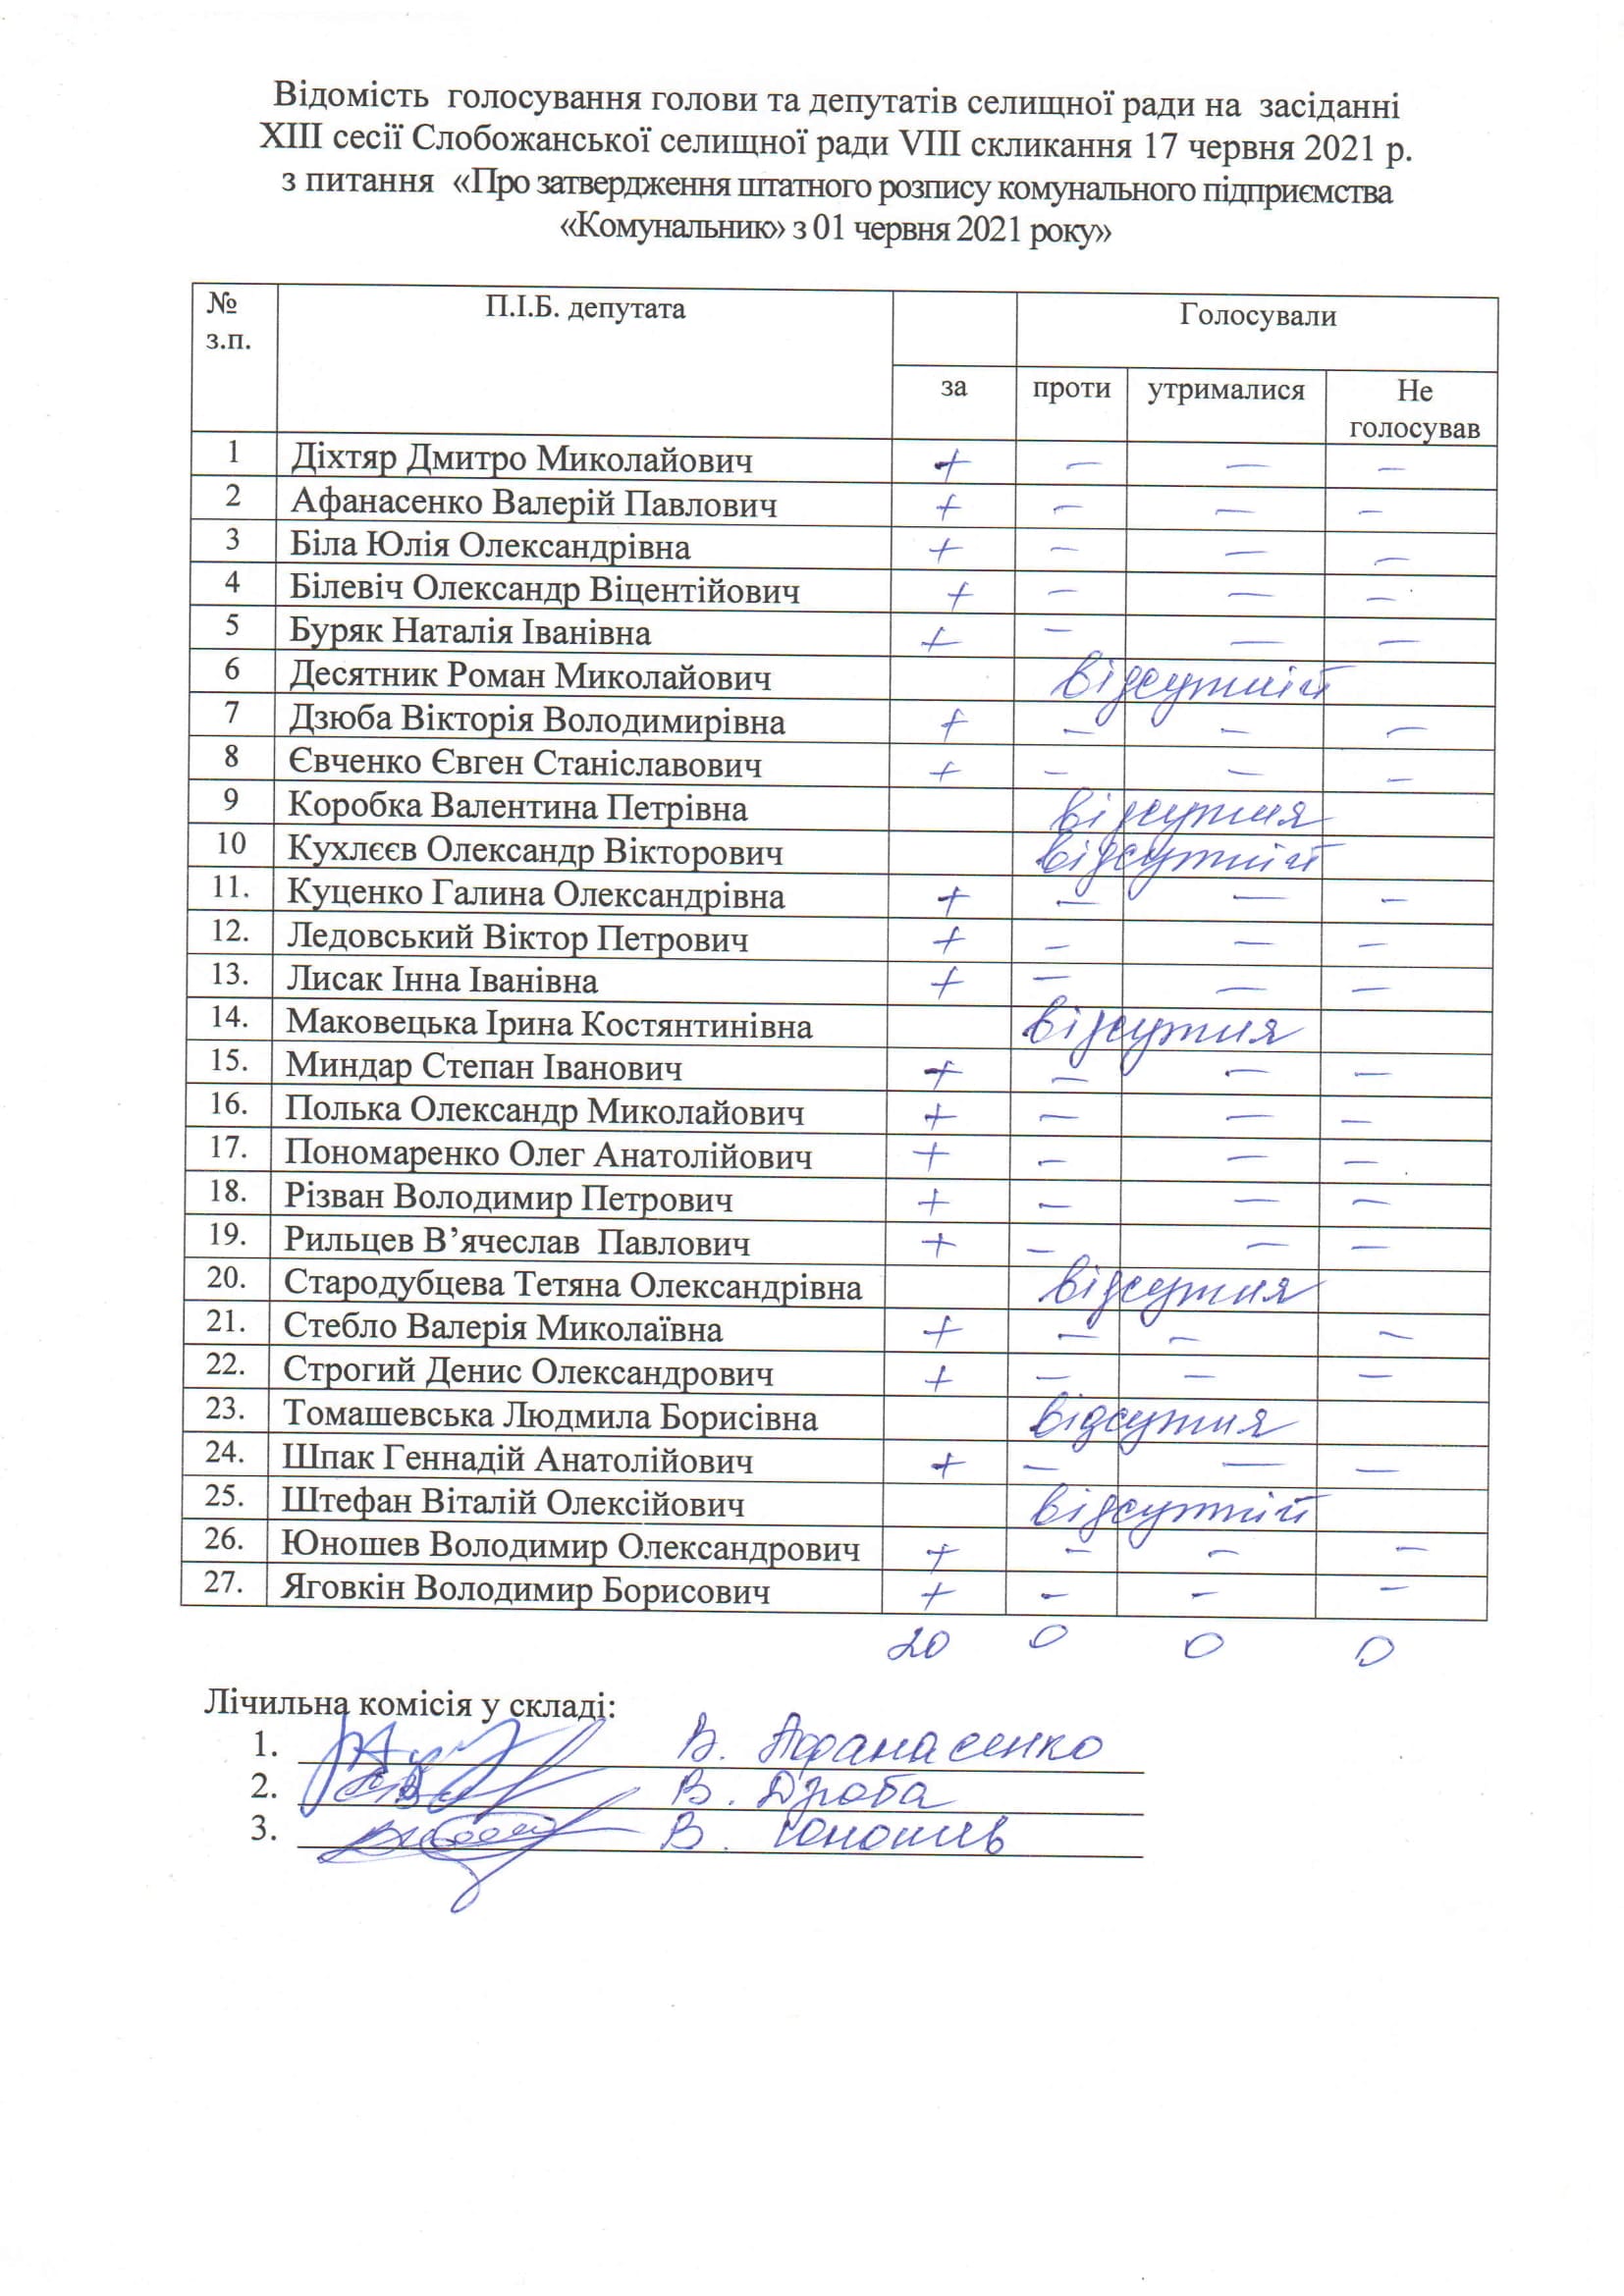 Відомість голосування голови та депутатів селищної ради на засіданні
XIII сесії Слобожанської селищної ради VIII скликання 17 червня 2021 р.
з питання «Про затвердження штатного розпису комунального підприємства
«Комунальник» з 01 червня 2021 року»
№ з.п. П.І.Б. депутата Голосували
за проти утрималися Не голосував
1 Діхтяр Дмитро Миколайович + – – –
2 Афанасенко Валерій Павлович + – – –
3 Біла Юлія Олександрівна + – – –
4 Білевіч Олександр Віцентійович + – – –
5 Буряк Наталія Іванівна + – – –
6 Десятник Роман Миколайович відсутній
7 Дзюба Вікторія Володимирівна + – – –
8 Євченко Євген Станіславович + – – –
9 Коробка Валентина Петрівна відсутня
10 Кухлєєв Олександр Вікторович відсутній
11. Куценко Галина Олександрівна + – – –
12. Ледовський Віктор Петрович + – – –
13. Лисак Інна Іванівна + – – –
14. Маковецька Ірина Костянтинівна відсутня
15. Миндар Степан Іванович + – – –
16. Полька Олександр Миколайович + – – –
17. Пономаренко Олег Анатолійович + – – –
18. Різван Володимир Петрович + – – –
19. Рильцев В’ячеслав Павлович + – – –
20. Стародубцева Тетяна Олександрівна відсутня
21. Стебло Валерія Миколаївна + – – –
22. Строгий Денис Олександрович + – – –
23. Томашевська Людмила Борисівна відсутня
24. Шпак Геннадій Анатолійович + – – –
25. Штефан Віталій Олексійович відсутній
26. Юношев Володимир Олександрович + – – –
27. Яговкін Володимир Борисович + – – –
20 0 0 0
Лічильна комісія у складі:
1. В. Афанасенко
2. В. Дзюба
3. В. Юношев